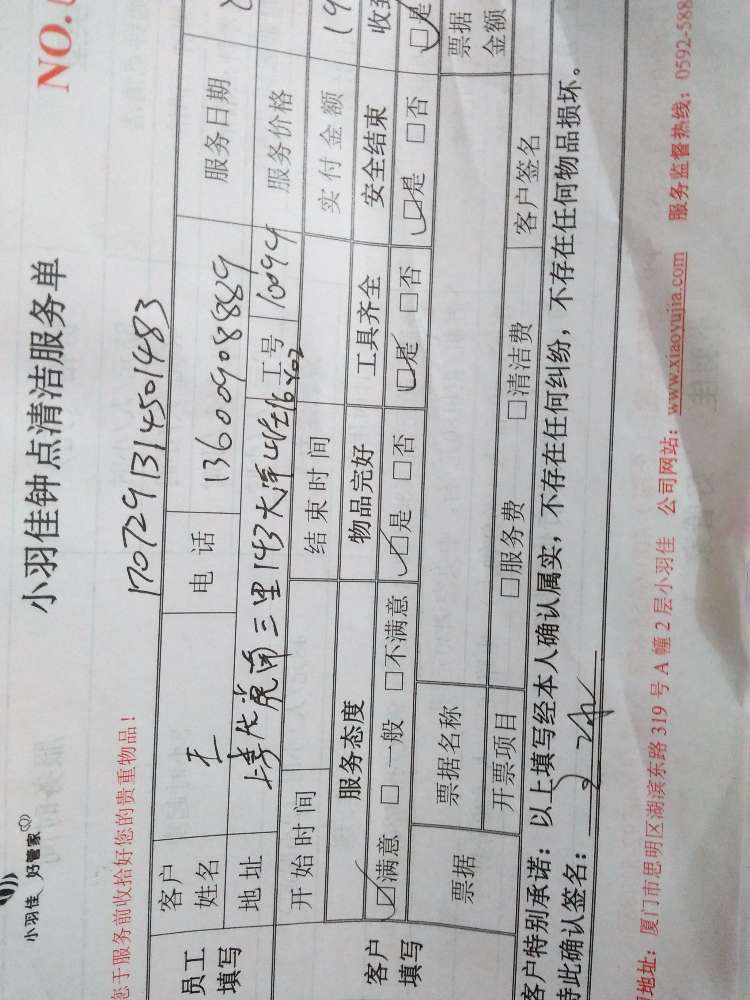 小羽佳 好管家
小羽佳钟点清洁服务单
NO.
1707291314501483
您于服务前收拾好您的贵重物品！
员工填写
客户姓名 王 电话 13600908889 服务日期
地址 南三里143 工号 10094 服务价格
客户填写
开始时间 结束时间 实付金额 19
服务态度 物品完好 工具齐全 安全结束 收到
☑满意 □一般 □不满意 ☑是 □否 ☑是 □否 ☑是 □否 ☑是
票据 票据名称 票据金额
开票项目 □服务费 □清洁费 客户签名
客户特别承诺：以上填写经本人确认属实，不存在任何纠纷，不存在任何物品损坏。
特此确认签名：
地址：厦门市思明区湖滨东路 319 号 A 幢 2 层小羽佳 公司网站：www.xiaoyujia.com 服务监督热线：0592-588